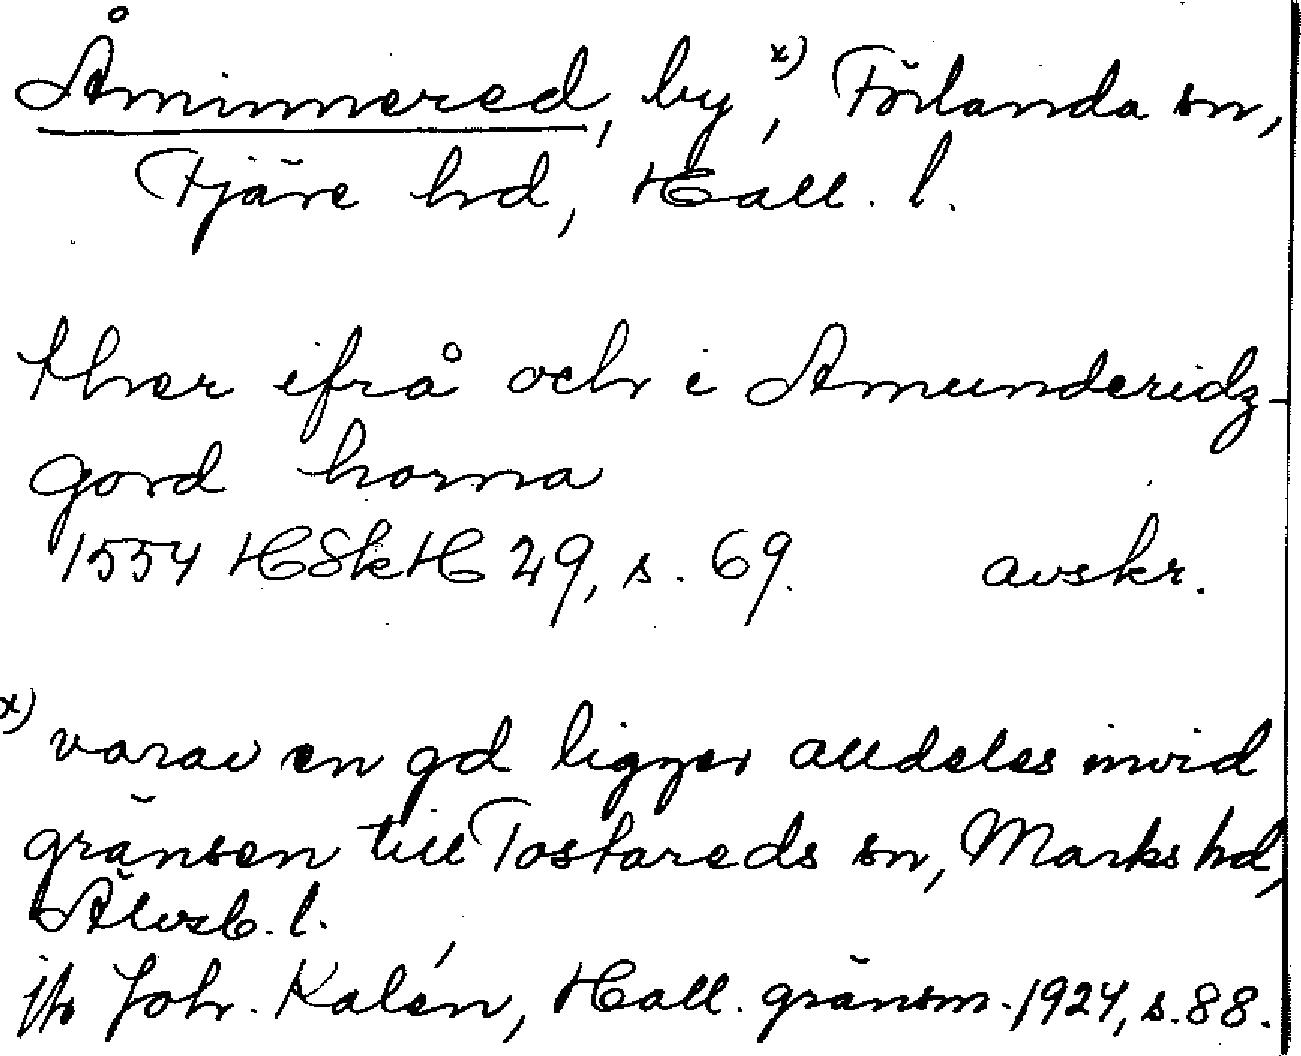 Åminnered, by,x) Förlanda sn,
Fjäre hd, Hall. l.
ther ifrå och i Amunderidz-
gord horna
1554 HSkH 29, s. 69. avskr.
x) varav en gd ligger alldeles invid
gränsen till Tostareds sn, Marks hd,
Älvsb. l.
jfr Joh. Kalén, Hall. gränsm. 1924, s. 88.